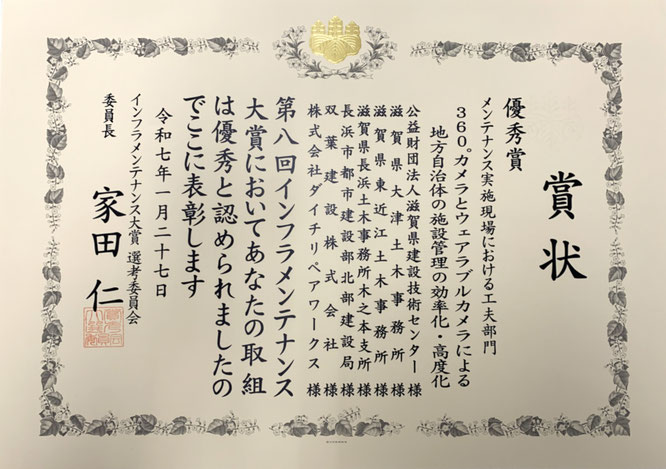 賞状
優秀賞
メンテナンス実施現場における工夫部門
360°カメラとウェアラブルカメラによる
地方自治体の施設管理の効率化・高度化
公益財団法人滋賀県建設技術センター様
滋賀県大津土木事務所様
滋賀県東近江土木事務所様
滋賀県長浜土木事務所木之本支所様
長浜市都市建設部北部建設局様
双葉建設株式会社様
株式会社ダイチリペアワークス様
第八回インフラメンテナンス
大賞においてあなたの取組
は優秀と認められましたの
でここに表彰します
令和七年一月二十七日
インフラメンテナンス大賞 選考委員会
委員長 家田仁